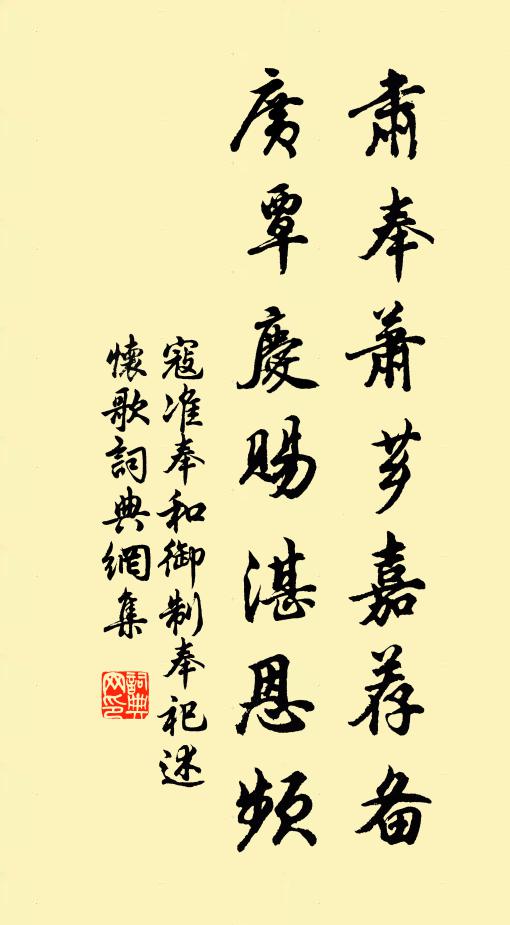 肅奉蕭芗嘉荐备
廣覃慶賜湛恩頻
寇准奉和御制奉祀述
懷歌詞典網集
詞典
网印